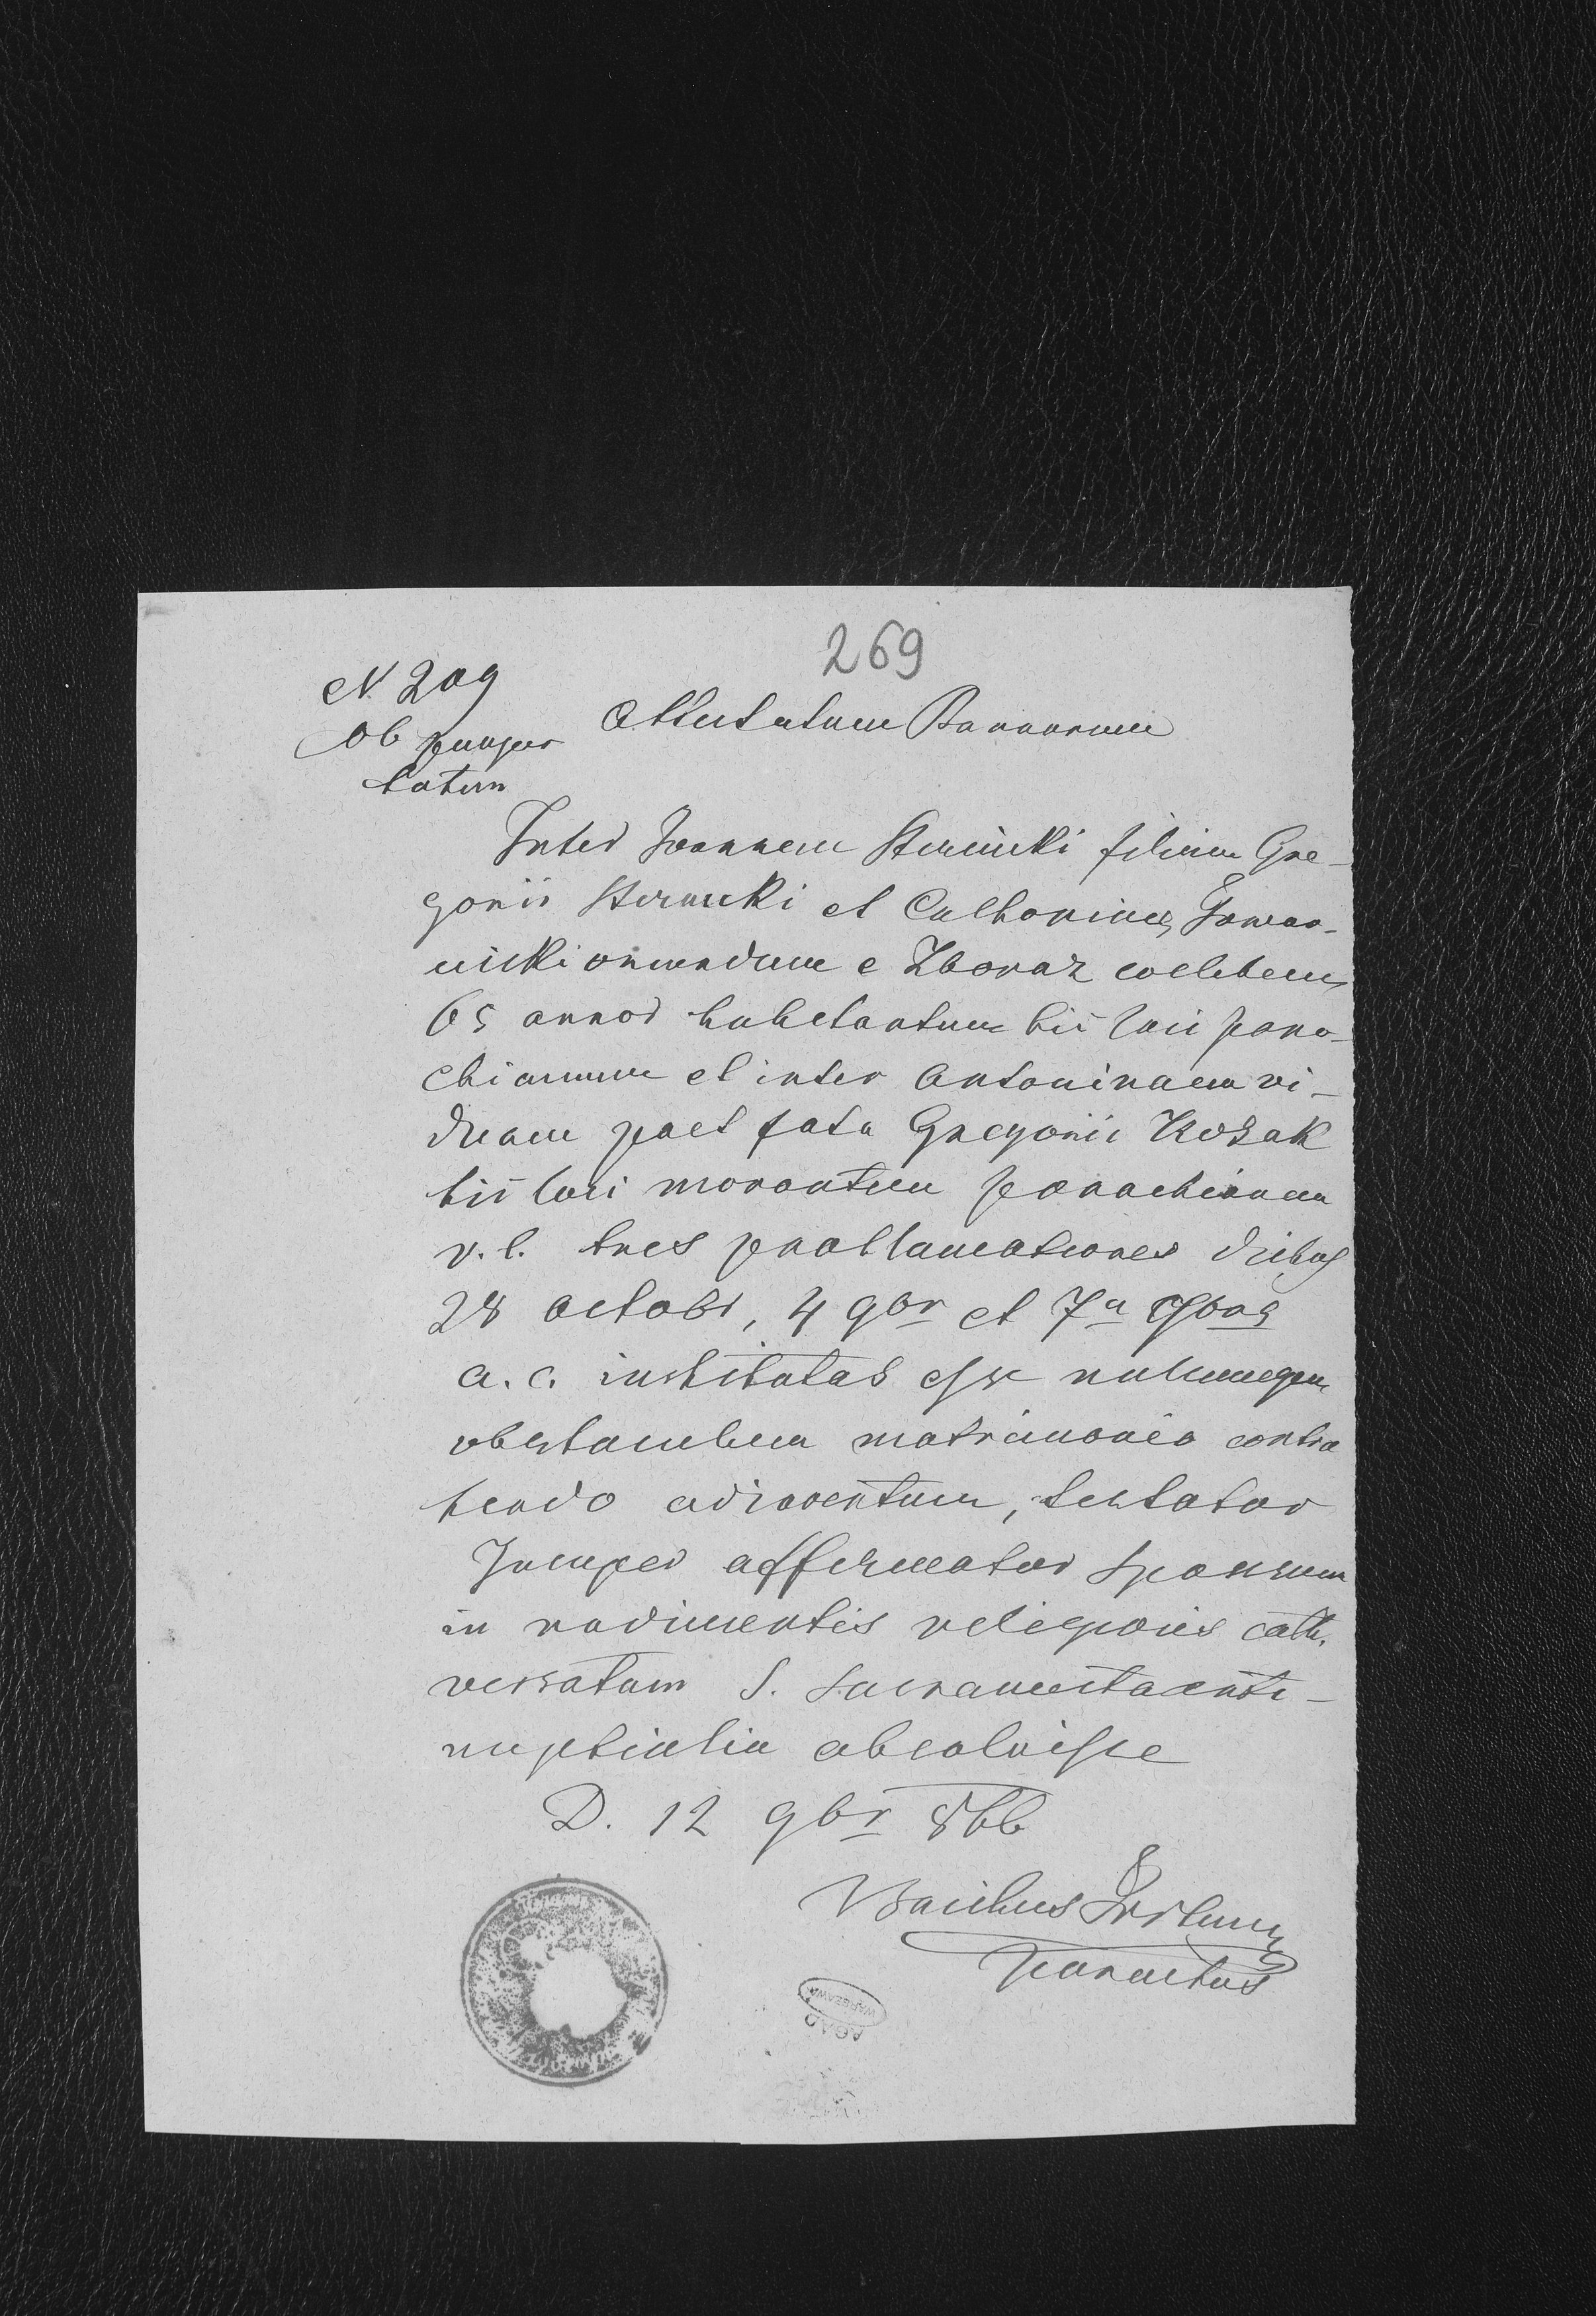 269
N 209
Ob pauper
tatem
Attestatum Bannorum
Inter Joannem Sternicki filium Gre-
gorii Sternicki et Catharinae
oriundum e Zbaraz coelebem
65 annos habitantem hii loci paro-
chianum et inter Antoninam vi-
duam post fata Gregorii Kozak
hii loci morantem parochianam
r. l. tres proclamationes diebus
28 octobr, 4 9br et 7a 9bris
a. c. institutas esse nullumque
obstaculum matrimonio contra
hendo adinventum, testatur
Insuper affirmatur sponsum
in rudimentis religionis cath.
versatum S. Sacramenta ante-
nuptialia absolvisse
D. 12 9br 866
Basilius
parochus
AGAD
WARSZAWA